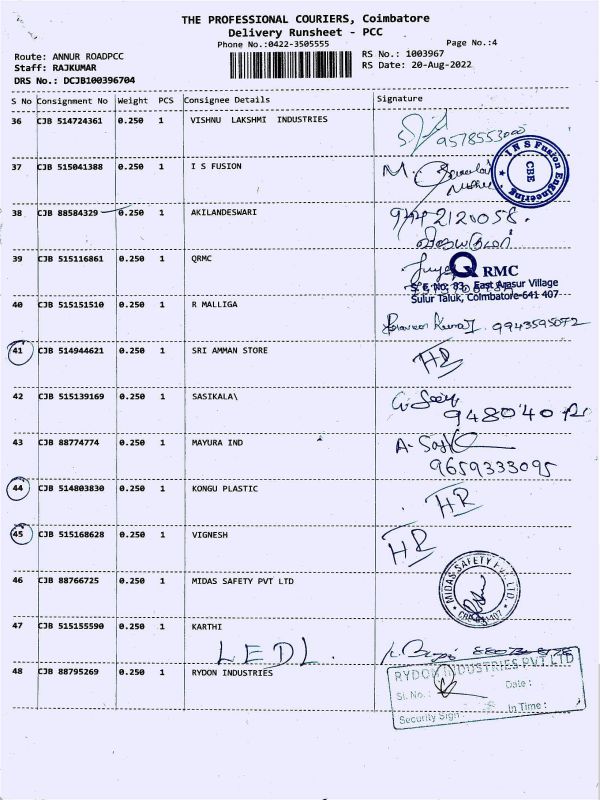 THE PROFESSIONAL COURIERS, Coimbatore
Delivery Runsheet - PCC
Phone No.:0422-3505555
Page No.:4
Route: ANNUR ROADPCC
RS No.: 1003967
Staff: RAJKUMAR
RS Date: 20-Aug-2022
DRS No.: DCJB100396704
S No Consignment No Weight PCS Consignee Details Signature
36 CJB 514724361 0.250 1 VISHNU LAKSHMI INDUSTRIES
9578553000
37 CJB 515041388 0.250 1 I S FUSION M.
I N S Fusion Engineering
CBE
38 CJB 88584329 0.250 1 AKILANDESWARI 9442120058.
39 CJB 515116861 0.250 1 QRMC
QRMC
S.F. No: 83, East Arasur Village
Sulur Taluk, Coimbatore-641 407
40 CJB 515151510 0.250 1 R MALLIGA
9943595072
41 CJB 514944621 0.250 1 SRI AMMAN STORE HR
42 CJB 515139169 0.250 1 SASIKALA\
43 CJB 88774774 0.250 1 MAYURA IND
9659333095
44 CJB 514803830 0.250 1 KONGU PLASTIC HR
45 CJB 515168628 0.250 1 VIGNESH HR
46 CJB 88766725 0.250 1 MIDAS SAFETY PVT LTD
MIDAS SAFETY PVT. LTD.
47 CJB 515155590 0.250 1 KARTHI
LEDL.
48 CJB 88795269 0.250 1 RYDON INDUSTRIES
RYDON INDUSTRIES PVT LTD
Sl. No. : Date :
Security Sign : In Time :